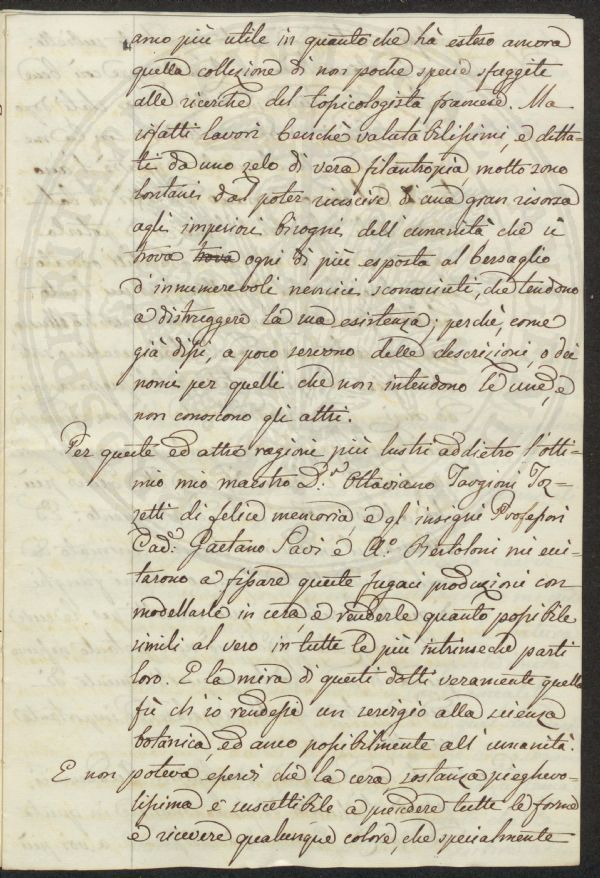 anco più utile in quanto che hà esteso ancora
quella collezione di non poche specie sfuggite
alle ricerche del topicologista francese. Ma
sifatti lavori benchè valutabilissimi, e detta-
ti da uno zelo di vera filantropia, molto sono
lontani dal poter riuscire di una gran risorsa
agli imperiosi bisogni dell'umanità che si
trova trova ogni dì più esposta al bersaglio
d'innumerevoli nemici sconosciuti, che tendono
a distruggere la sua esistenza; perchè, come
già dissi, a poco servono delle descrizioni, o dei
nomi per quelli che non intendono le une, e
non conoscono gli altri.
Per queste ed altre ragioni più lustri addietro l'otti-
mo mio maestro D.r Ottaviano Targioni Toz-
zetti di felice memoria, e gl'insigni Professori
Cad.r Gaetano Savi e A.o Bertoloni mi eci-
tarono a fissare queste fugaci produzioni con
modellarle in cera e renderle quanto possibile
simili al vero in tutte le più intrinseche parti
loro. E la mira di questi dotti veramente quella
fù ch'io rendessi un servigio alla scienza
botanica, ed anco possibilmente all'umanità.
E non poteva essersi che la cera, sostanza pieghevo-
lissima e suscettibile a prendere tutte le forme
e ricevere qualunque colore, che specialmente